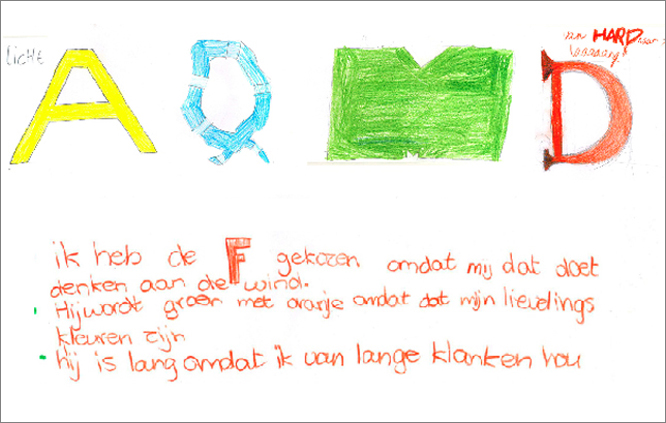 licht
van HARD naar
A Q M D
ik heb de F gekozen omdat mij dat doet
denken aan de wind.
Hij wordt groen met oranje omdat dat mijn lievelings
kleuren zijn
hij is lang omdat ik van lange klanken hou